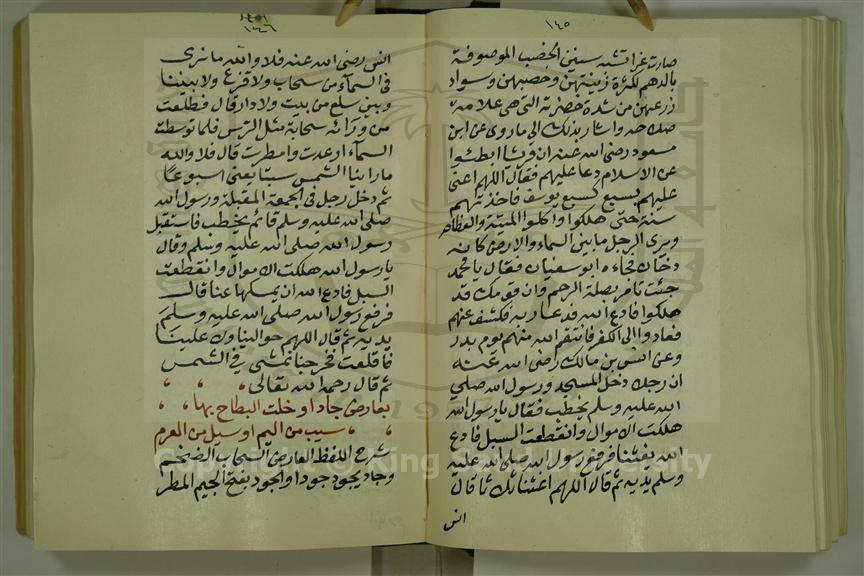 ١٤٥
صارت غراتشبه سنين الخصب الموصوفة
بالدهم لكثرة زينتهن وخصبهن وسواد
زرعهن من شدة خضرته التي هي علامة
صلاحه واشار بذلك الى ما روى عن ابن
مسعود رضى الله عنه ان قريشا ابطئوا
عن الاسلام دعا عليهم فقال اللهم اعنى
عليهم بسبع كسبع يوسف فاخذتهم
سنة حتى هلكوا واكلوا الميتة والعظام
ويرى الرجل ما بين السماء والارض كانه
دخان فجاءه ابو سفيان فقال يا محمد
جئت تامر بصلة الرحم وان قومك قد
هلكوا فادع الله فدعا ربه فكشف عنهم
فعادوا الى الكفر فانتقم الله منهم يوم بدر
وعن انس بن مالك رضى الله عنه
ان رجلا دخل المسجد ورسول الله صلى
الله عليه وسلم يخطب فقال يا رسول الله
هلكت الاموال وانقطعت السبل فادع
الله يغثنا فرفع رسول الله صلى الله عليه
وسلم يديه ثم قال اللهم اغثنا ثلاثا قال
انس
١٤٦
انس رضى الله عنه فلا والله ما نرى
فى السماء من سحاب ولا قزع ولا بيننا
وبين سلع من بيت ولا دار قال فطلعت
من ورائه سحابة مثل الترس فلما توسطت
السماء ارعدت وامطرت قال فلا والله
ما راينا الشمس سبتا يعنى اسبوعا
ثم دخل رجل فى الجمعة المقبلة ورسول الله
صلى الله عليه وسلم قائم يخطب فاستقبل
رسول الله صلى الله عليه وسلم وقال
يا رسول الله هلكت الاموال وانقطعت
السبل فادع الله ان يمسكها عنا قال
فرفع رسول الله صلى الله عليه وسلم
يديه ثم قال اللهم حوالينا ولا علينا
فاقلعت فخرجنا نمشى فى الشمس
ثم قال رحمه الله تعالى
بعارض جاد او خلت البطاح بها
سيب من اليم او سيل من العرم
شرح اللفظ العارض السحاب الضخم
وجاد يجود جودا والجود بفتح الجيم المطر
Copyright © King Saud University